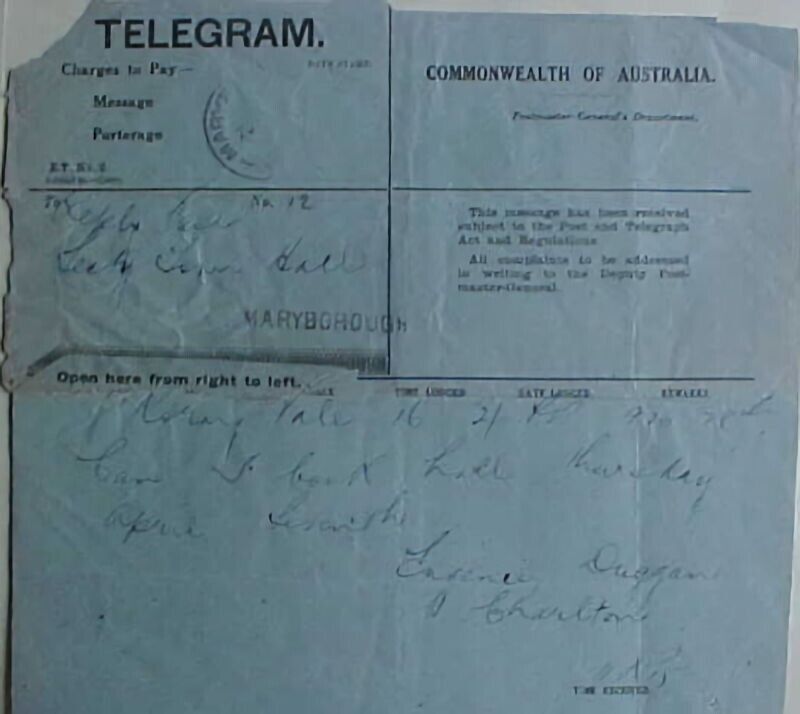 TELEGRAM.
Charges to Pay—
Message
Porterage
COMMONWEALTH OF AUSTRALIA.
Postmaster-General's Department.
To
No. 12
Hall
MARYBOROUGH
This message has been received
subject to the Post and Telegraph
Act and Regulations
All complaints to be addressed
in writing to the Deputy Post-
master-General.
Open here from right to left.
TIME LODGED
DATE LODGED
REMARKS
Vale 16 21
Can I book hall thursday
April Seventh
Eugenie Duggan
Charlton
TIME RECEIVED